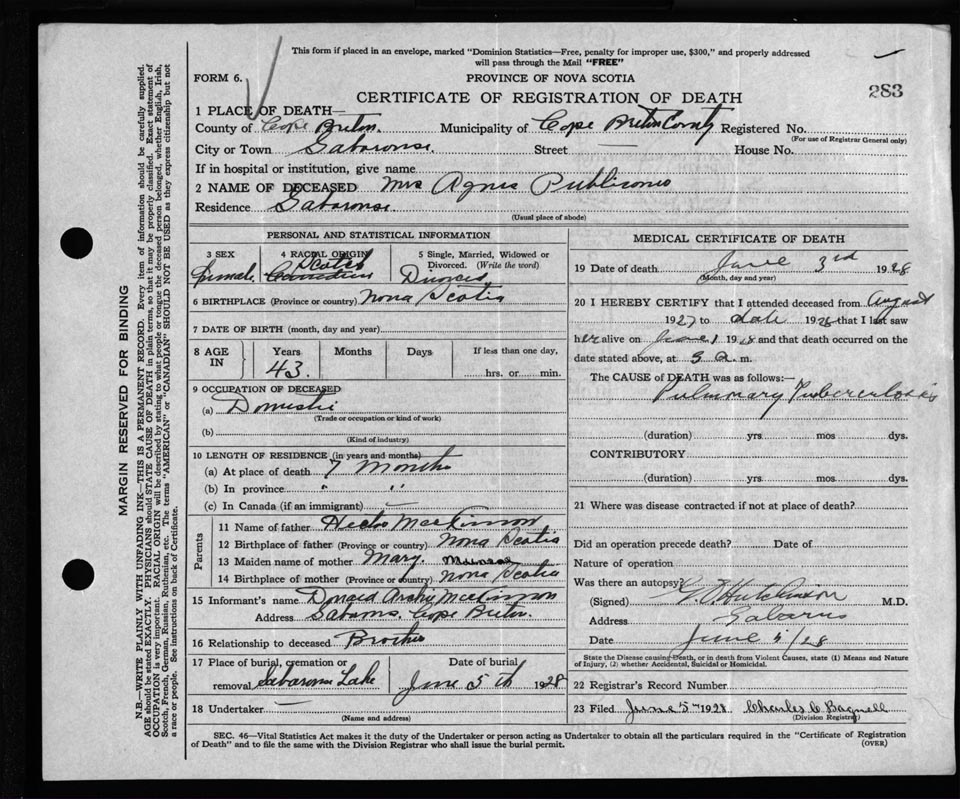 This form if placed in an envelope, marked "Dominion Statistics—Free, penalty for improper use, $300," and properly addressed
will pass through the Mail "FREE"
FORM 6.
PROVINCE OF NOVA SCOTIA
283
CERTIFICATE OF REGISTRATION OF DEATH
1 PLACE OF DEATH—
County of Cape Breton. Municipality of Cape Breton County Registered No.
(For use of Registrar General only)
City or Town Gabarouse. Street — House No.
If in hospital or institution, give name
2 NAME OF DECEASED Mrs Agnes
Residence Gabarouse.
(Usual place of abode)
PERSONAL AND STATISTICAL INFORMATION
3 SEX 4 RACIAL ORIGIN 5 Single, Married, Widowed or
Divorced. (Write the word)
female. Scotch Divorced
Canadian
6 BIRTHPLACE (Province or country) Nova Scotia
7 DATE OF BIRTH (month, day and year)
8 AGE IN Years Months Days If less than one day,
43. hrs. or min.
9 OCCUPATION OF DECEASED
(a) Domestic
(Trade or occupation or kind of work)
(b)
(Kind of industry)
10 LENGTH OF RESIDENCE (in years and months)
(a) At place of death 7 Months
(b) In province " "
(c) In Canada (if an immigrant) —
Parents
11 Name of father Hector MacKinnon
12 Birthplace of father (Province or country) Nova Scotia
13 Maiden name of mother Mary.
14 Birthplace of mother (Province or country) Nova Scotia
15 Informant's name Donald Archy MacKinnon
Address Gabarus. Cape Breton.
16 Relationship to deceased Brother
17 Place of burial, cremation or Date of burial
removal Gabarouse Lake June 5th 1928
18 Undertaker —
(Name and address)
MEDICAL CERTIFICATE OF DEATH
19 Date of death June 3rd 1928
(Month, day and year)
20 I HEREBY CERTIFY that I attended deceased from August
1927 to date 1928 that I last saw
her alive on June 1 1928 and that death occurred on the
date stated above, at 5 a. m.
The CAUSE of DEATH was as follows:—
Pulmonary Tuberculosis
(duration) yrs. mos. dys.
CONTRIBUTORY
(duration) yrs. mos. dys.
21 Where was disease contracted if not at place of death?
Did an operation precede death? Date of
Nature of operation
Was there an autopsy?
(Signed) Hutchinson M.D.
Address Gabarus
Date June 5/28
State the Disease causing Death, or in death from Violent Causes, state (1) Means and Nature
of Injury, (2) whether Accidental, Suicidal or Homicidal.
22 Registrar's Record Number
23 Filed June 5 1928 Charles C Bagnell
(Division Registrar)
SEC. 46—Vital Statistics Act makes it the duty of the Undertaker or person acting as Undertaker to obtain all the particulars required in the "Certificate of Registration
of Death" and to file the same with the Division Registrar who shall issue the burial permit.
(OVER)
MARGIN RESERVED FOR BINDING
N.B.—WRITE PLAINLY WITH UNFADING INK—THIS IS A PERMANENT RECORD. Every item of information should be carefully supplied.
AGE should be stated EXACTLY. PHYSICIANS should STATE CAUSE OF DEATH in plain terms, so that it may be properly classified. Exact statement of
OCCUPATION is very important. RACIAL ORIGIN will be described by stating to what people or tongue the deceased person belonged, whether English, Irish,
Scotch, French, German, Russian, Ruthenian, etc. The terms "AMERICAN" or "CANADIAN" SHOULD NOT BE USED as they express citizenship but not
a race or people. See instructions on back of Certificate.